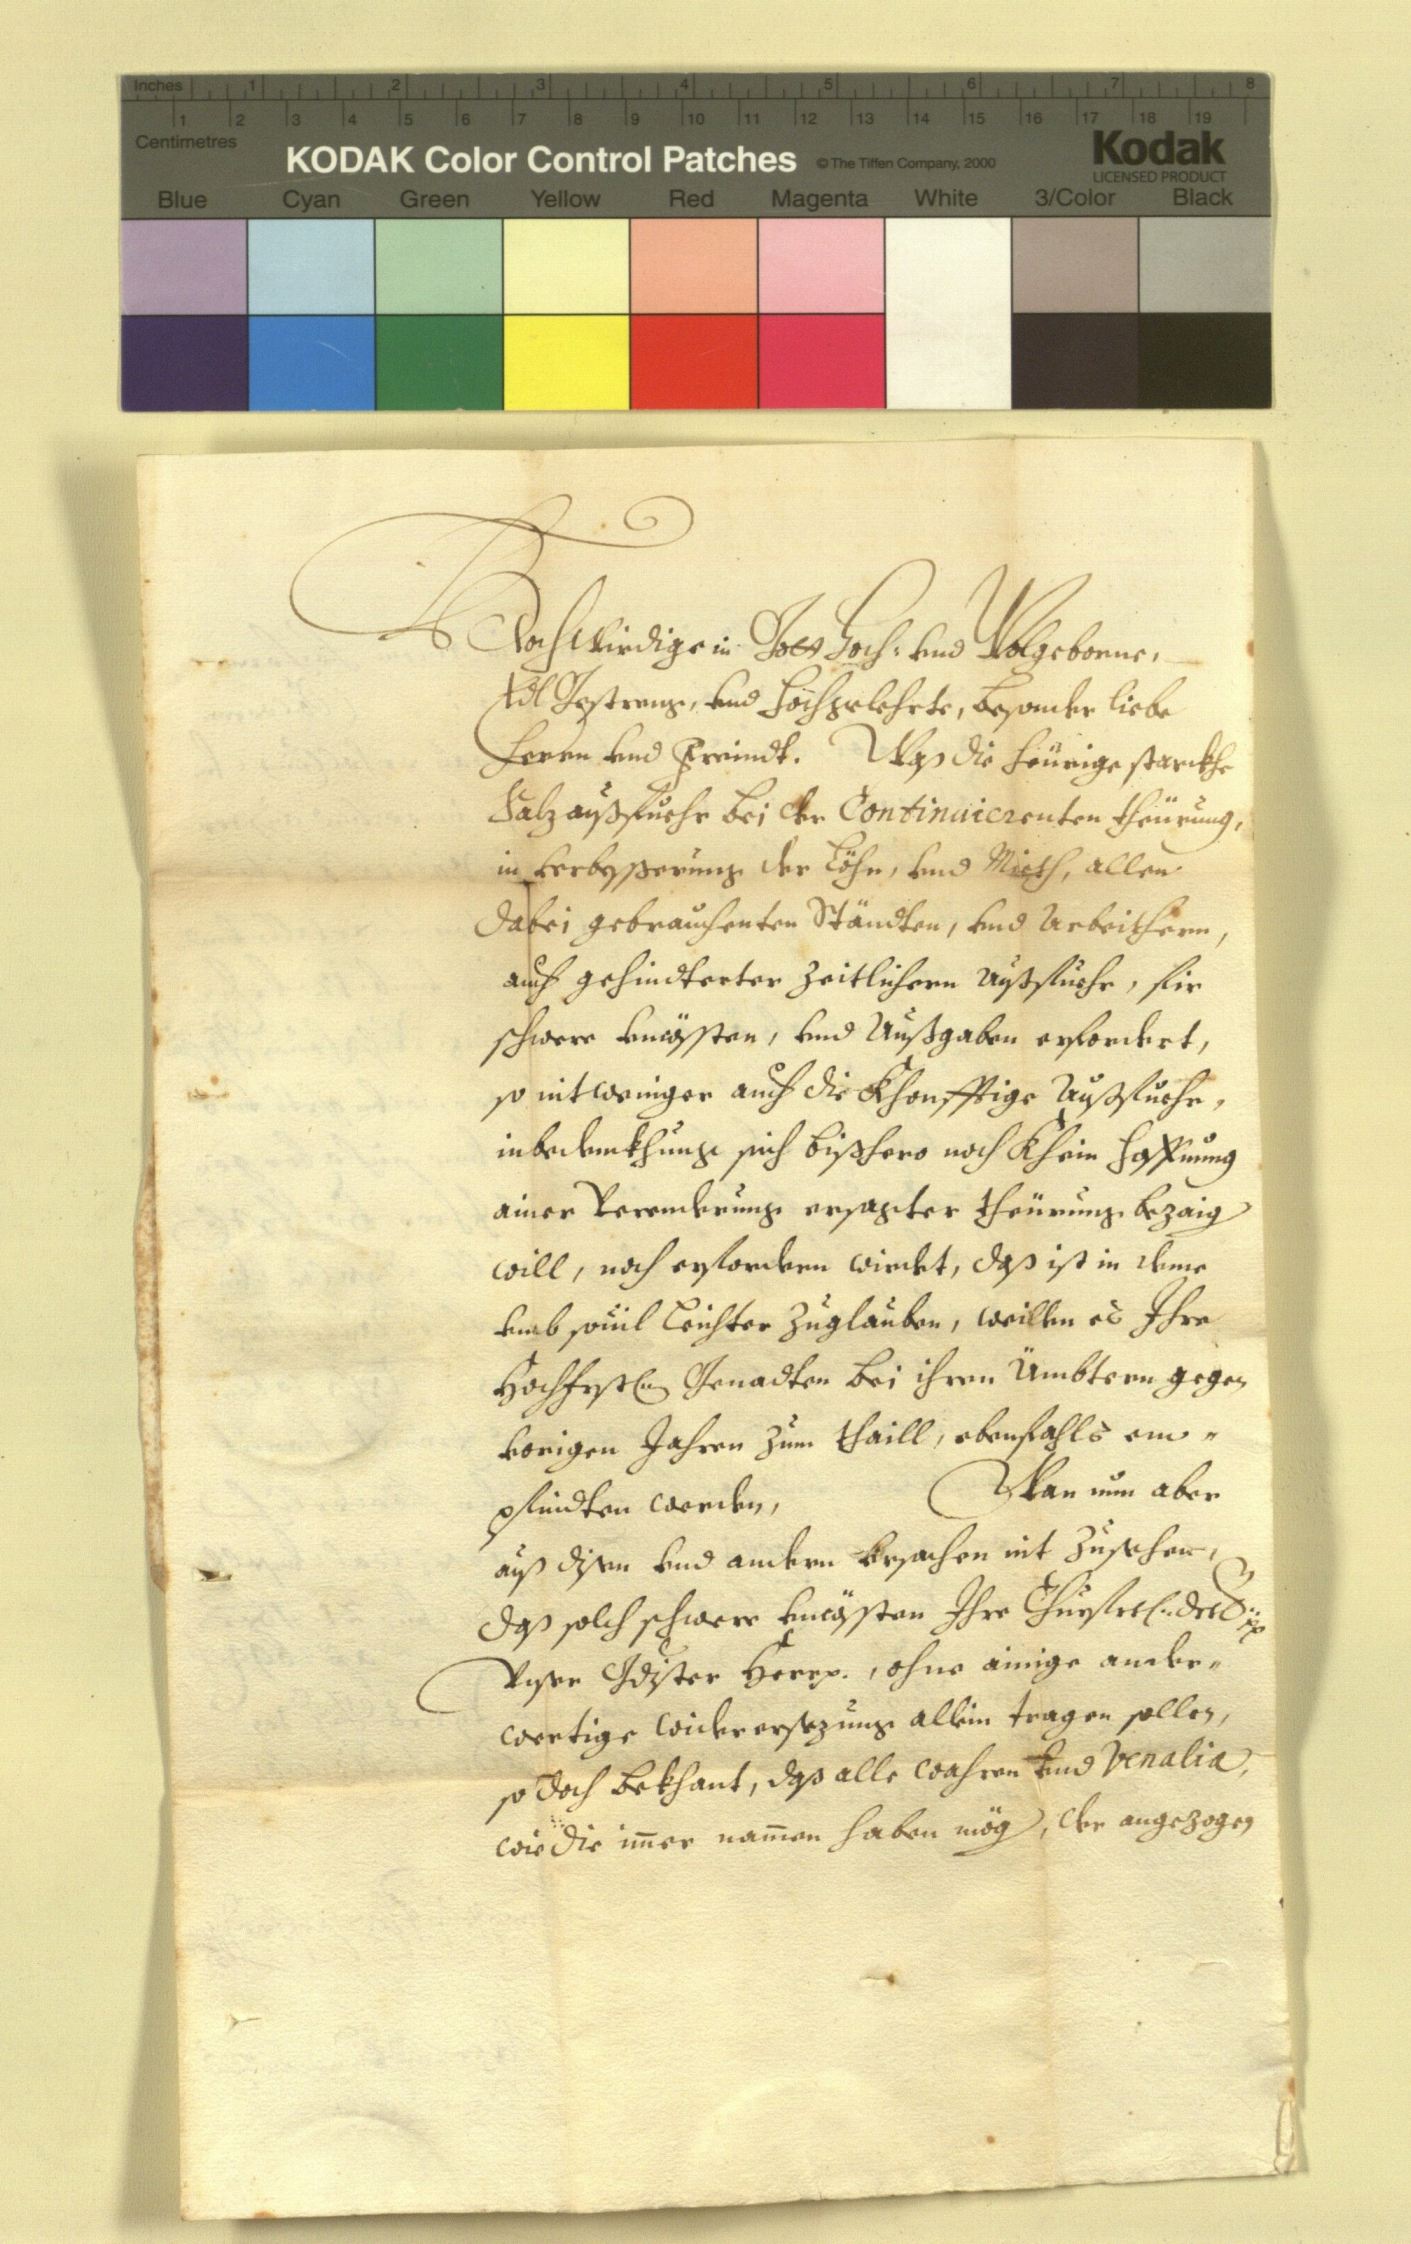 Inches 1 2 3 4 5 6 7 8
1 2 3 4 5 6 7 8 9 10 11 12 13 14 15 16 17 18 19
Centimetres
KODAK Color Control Patches © The Tiffen Company, 2000 Kodak
LICENSED PRODUCT
Blue Cyan Green Yellow Red Magenta White 3/Color Black
Hochwirdige in Gott Hoch: und Wolgeborne,
Edl Gestrenge, und Hochgelehrte, besonder liebe
Herrn und Freindt. Was die heürige starckhe
Salz außfuehr bei der Continuierenten theürung,
in verbesserung der Löhn, und Mieth, allen
dabei gebrauchenten Ständten, und Arbeithern,
auch gehindterter zeitlichern Außfuehr, fir
schwere uncössten, und Außgaben erfordert,
so nit weniger auch die Khonfftige Außfuehr,
in bedenkhung sich bißhero noch Khein hoffnung
ainer Verenderung ersagter theürung bezaig
will, noch erfordern wirdet, das ist in deme
umb souil leichter zuglauben, weillen es Ihre
Hochfrstl: Genadten bei ihren Ämbtern gegen
vorigen Jahren zum thaill, ebenfahls em-
pfindten werden, Wan nun aber
auß disen und andern ursachen nit zusehen,
daß solch schwere uncössten Ihre Churfrtl: drtl:
Unser Gdister Herr p., ohne ainige ander-
wertige widerersezung allein tragen sollen,
so doch bekhant, daß alle wahren und Venalia,
wie die immer nammen haben mög, der angezogen